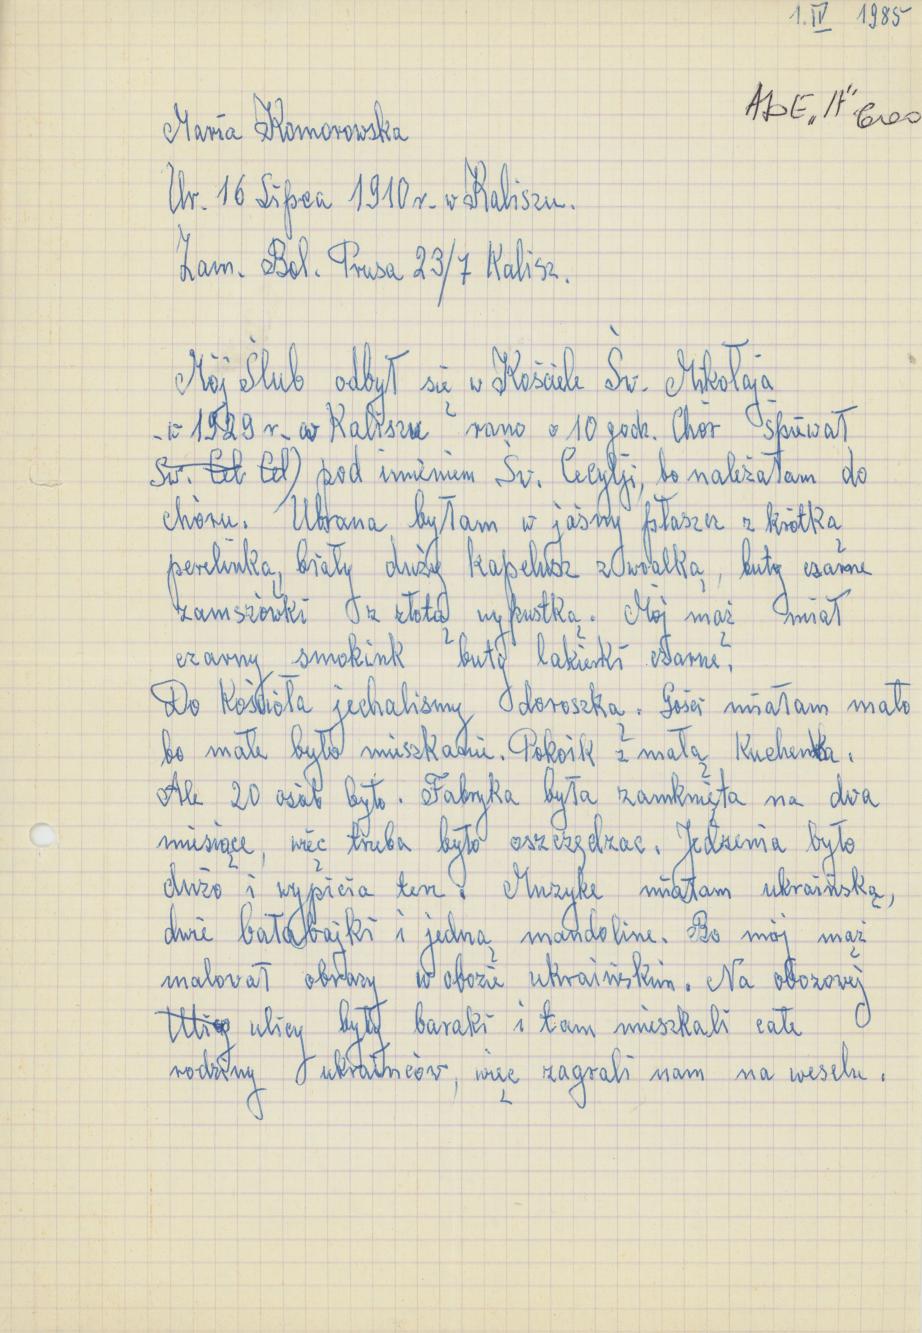 1.IV 1985
Maria Komorowska
Ur. 16 Lipca 1910 r. w Kaliszu.
Zam. Bol. Prusa 23/7 Kalisz.
Mój Ślub odbył się w Kościele Św. Mikołaja
w 1929 r. w Kaliszu rano o 10 godz. Chór śpiewał
Św. Cel Cel) pod imieniem Św. Cecylji, bo należałam do
chóru. Ubrana byłam w jasny płaszcz z krótką
perelinką, biały duży kapelusz z woalką, buty czarne
zamszówki z złotą wypustką. Mój mąż miał
czarny smokink buty lakierki czarne.
Do Kościoła jechalismy doroszką. Gości miałam mało
bo małe było mieszkanie. Pokoik z małą Kuchenką.
Ale 20 osób było. Fabryka była zamknięta na dwa
miesiące, więc trzeba było oszczędzac. Jedzenia było
dużo i wypicia terz. Muzyke miałam ukraińską,
dwie bałabajki i jedną mandoline. Bo mój mąż
malował obrazy w obozie ukraińskim. Na obozowej
Ulicy ulicy były baraki i tam mieszkali całe
rodziny ukraińców, więc zagrali nam na weselu.